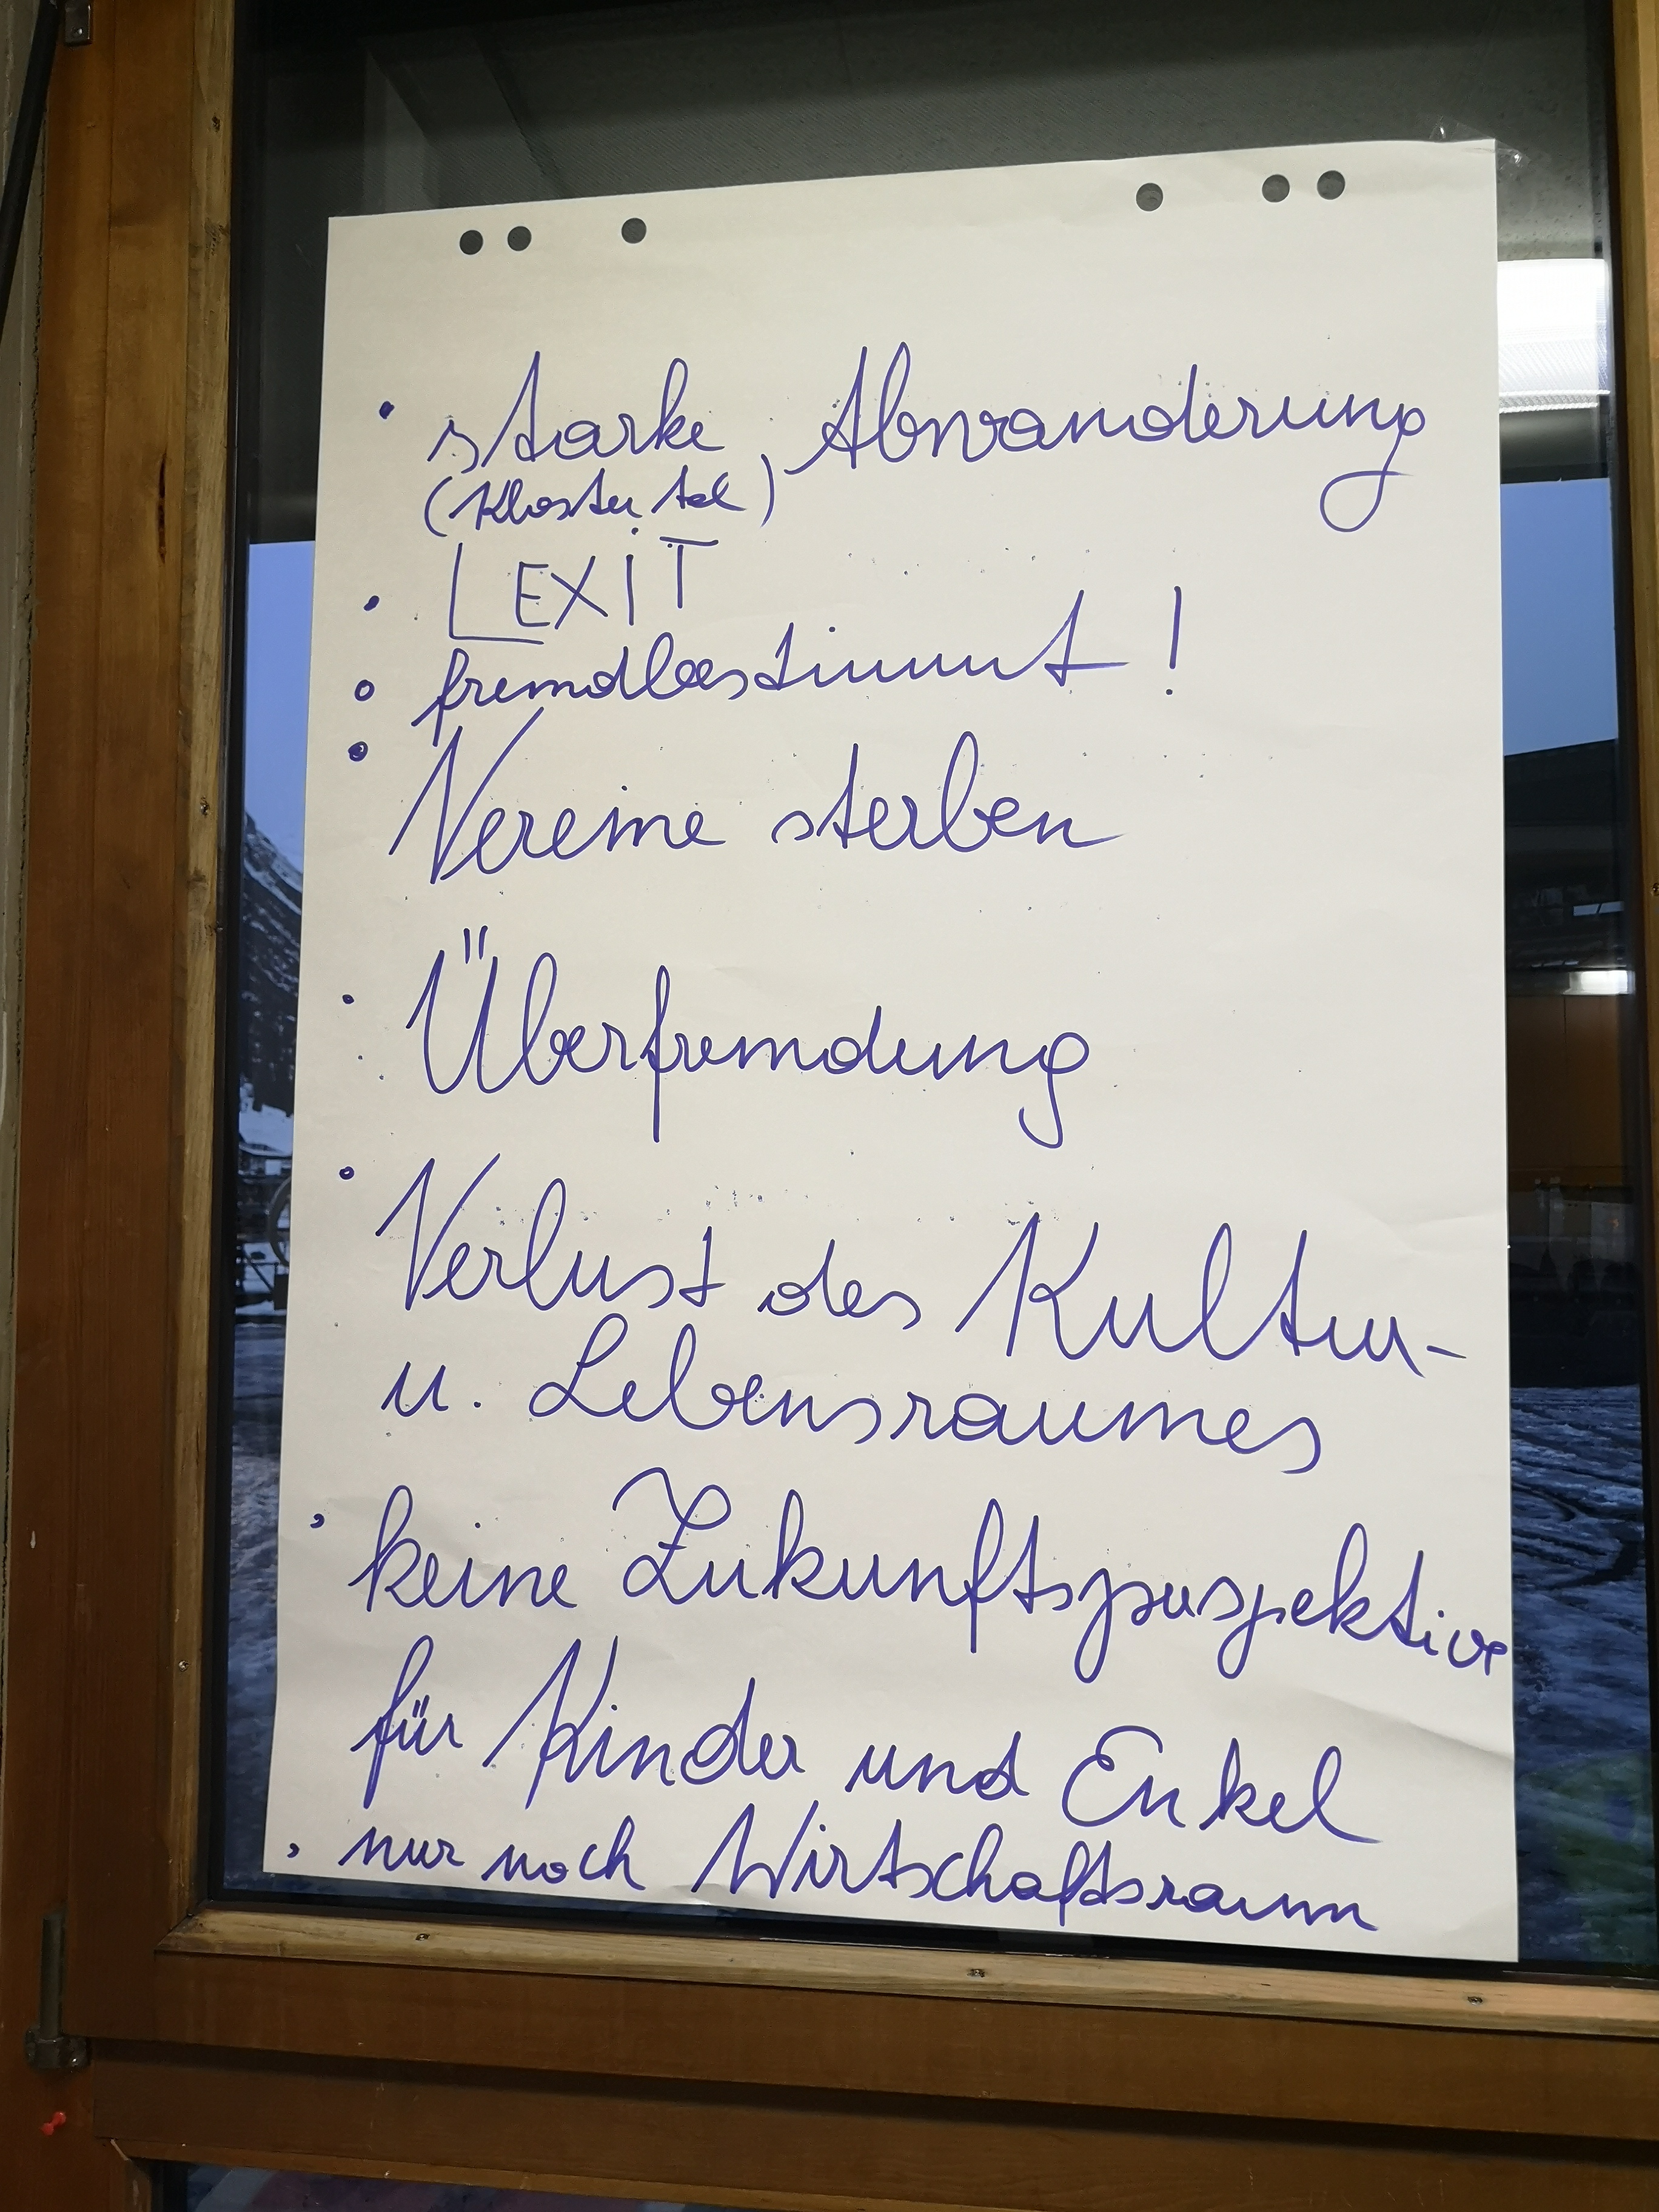 • starke Abwanderung
(Klostertal)
• LEXiT
• fremdbestimmt !
• Vereine sterben
• Überfremdung
• Verlust des Kultur-
u. Lebensraumes
• keine Zukunftsperspektive
für Kinder und Enkel
• nur noch Wirtschaftsraum